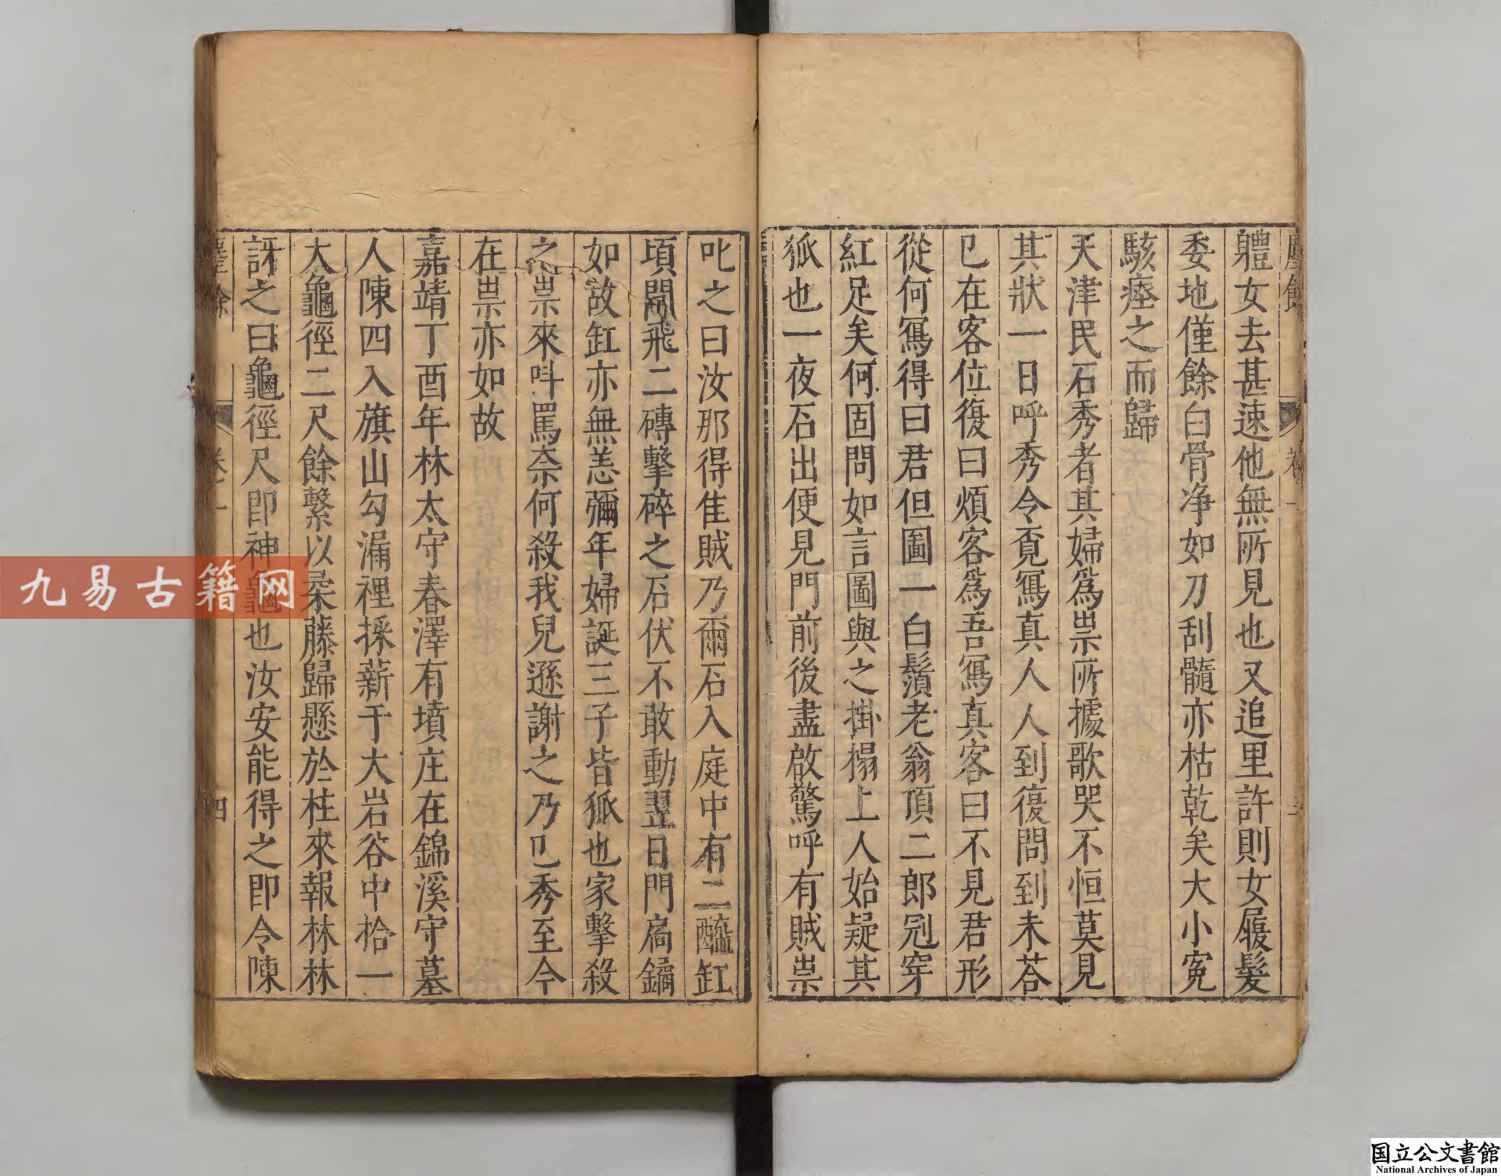 軆女去甚速他無所見也又追里許則女履髮
委地僅餘白骨净如刀刮髓亦枯乾矣大小寃
駭瘞之而歸
天津民石秀者其婦爲祟所據歌哭不恒莫見
其狀一日呼秀令覔冩真人人到復問到未荅
已在客位復曰煩客爲吾冩真客曰不見君形
從何冩得曰君但圖一白鬚老翁頂二郎冠穿
紅足矣何固問如言圖與之掛搨上人始疑其
狐也一夜石出便見門前後盡啟驚呼有賊祟
叱之曰汝那得隹賊乃爾石入庭中有二醯缸
頃閒飛二磚擊碎之石伏不敢動翌日門扃鐍
如故缸亦無恙彌年婦誕三子皆狐也家擊殺
之祟來呌罵奈何殺我兒遜謝之乃已秀至今
在祟亦如故
嘉靖丁酉年林太守春澤有墳庄在錦溪守墓
人陳四入旗山勾漏裡採薪于大岩谷中拾一
大龜徑二尺餘繫以柔藤歸懸於柱來報林林
訝之曰龜徑尺即神龜也汝安能得之即令陳
塵餘
卷一
四
九易古籍网
国立公文書館
National Archives of Japan